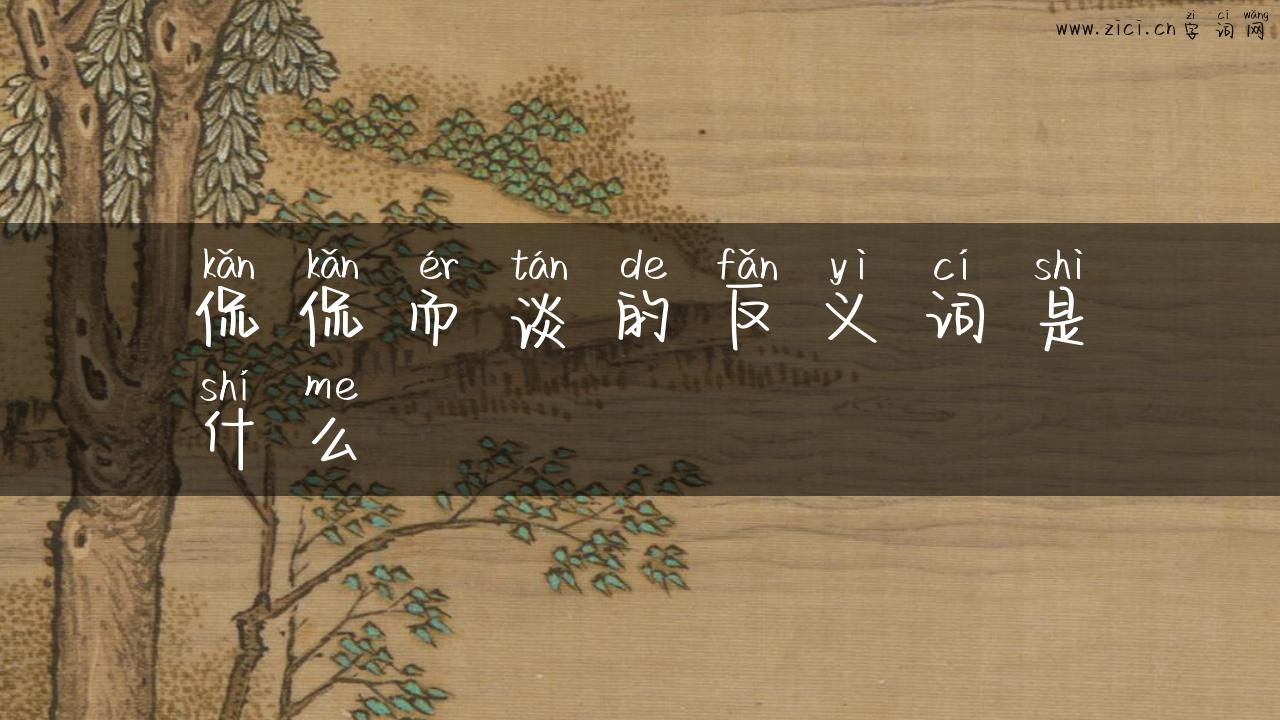 zì cí wǎng
www.zici.cn 字词网
kǎn kǎn ér tán de fǎn yì cí shì
侃侃而谈的反义词是
shí me
什么